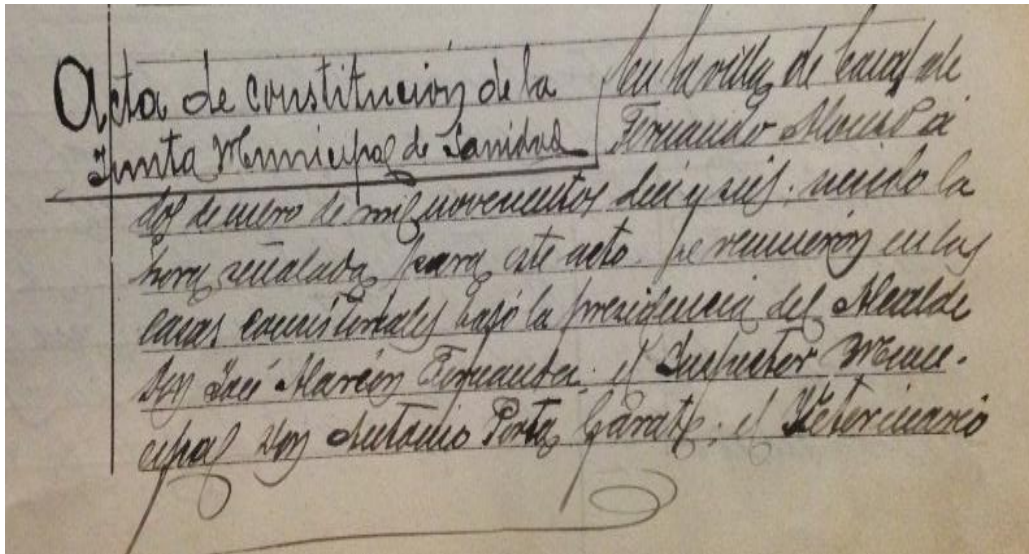 Acta de constitución de la
Junta Municipal de Sanidad
En la villa de Casas de
Fernando Alonso a
dos de enero de mil novecientos diez y seis, siendo la
hora señalada para este acto se reunieron en las
casas consistoriales bajo la presidencia del Alcalde
Don José Alarcón Fernandez; el Inspector Muni-
cipal Don Antonio Garate; el Veterinario